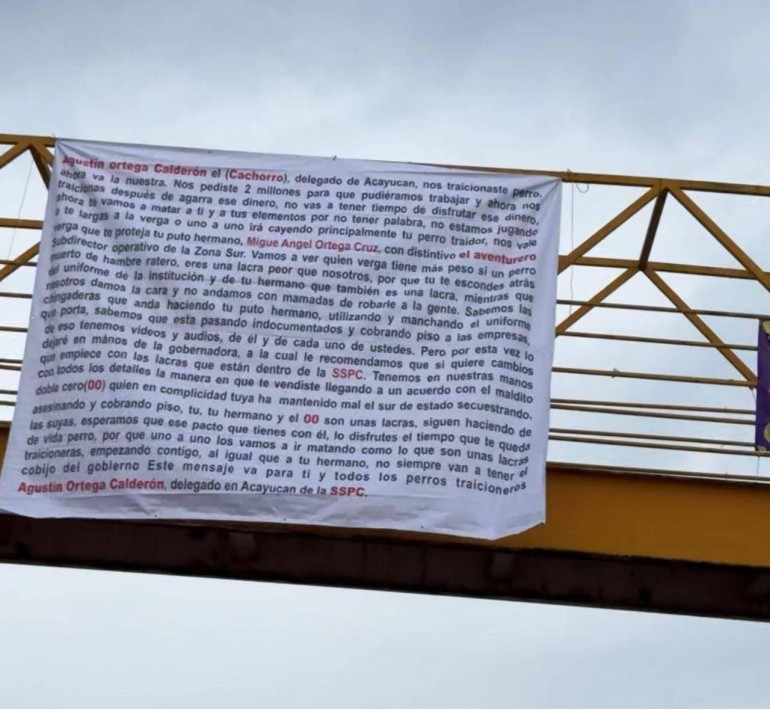 Agustín ortega Calderón el (Cachorro), delegado de Acayucan, nos traicionaste perro.
ahora va la nuestra. Nos pediste 2 millones para que pudiéramos trabajar y ahora nos
traicionas después de agarra ese dinero, no vas a tener tiempo de disfrutar ese dinero,
ahora te vamos a matar a ti y a tus elementos por no tener palabra, no estamos jugando
o te largas a la verga o uno a uno irá cayendo principalmente tu perro traidor, nos vale
verga que te proteja tu puto hermano, Migue Angel Ortega Cruz, con distintivo el aventurero
Subdirector operativo de la Zona Sur. Vamos a ver quien verga tiene más peso si un perro
muerto de hambre ratero, eres una lacra peor que nosotros, por que tu te escondes atrás
del uniforme de la institución y de tu hermano que también es una lacra, mientras que
nosotros damos la cara y no andamos con mamadas de robarle a la gente. Sabemos las
chingaderas que anda haciendo tu puto hermano, utilizando y manchando el uniforme
que porta, sabemos que esta pasando indocumentados y cobrando piso a las empresas,
de eso tenemos videos y audios, de él y de cada uno de ustedes. Pero por esta vez lo
dejaré en mános de la gobernadora, a la cual le recomendamos que si quiere cambios
que empiece con las lacras que están dentro de la SSPC. Tenemos en nuestras manos
con todos los detalles la manera en que te vendiste llegando a un acuerdo con el maldito
doble cero(00) quien en complicidad tuya ha mantenido mal el sur de estado secuestrando,
asesinando y cobrando piso, tu, tu hermano y el 00 son unas lacras, siguen haciendo de
las suyas, esperamos que ese pacto que tienes con él, lo disfrutes el tiempo que te queda
de vida perro, por que uno a uno los vamos a ir matando como lo que son unas lacras
traicioneras, empezando contigo, al igual que a tu hermano, no siempre van a tener el
cobijo del gobierno Este mensaje va para ti y todos los perros traicioneros
Agustín Ortega Calderón, delegado en Acayucan de la SSPC.